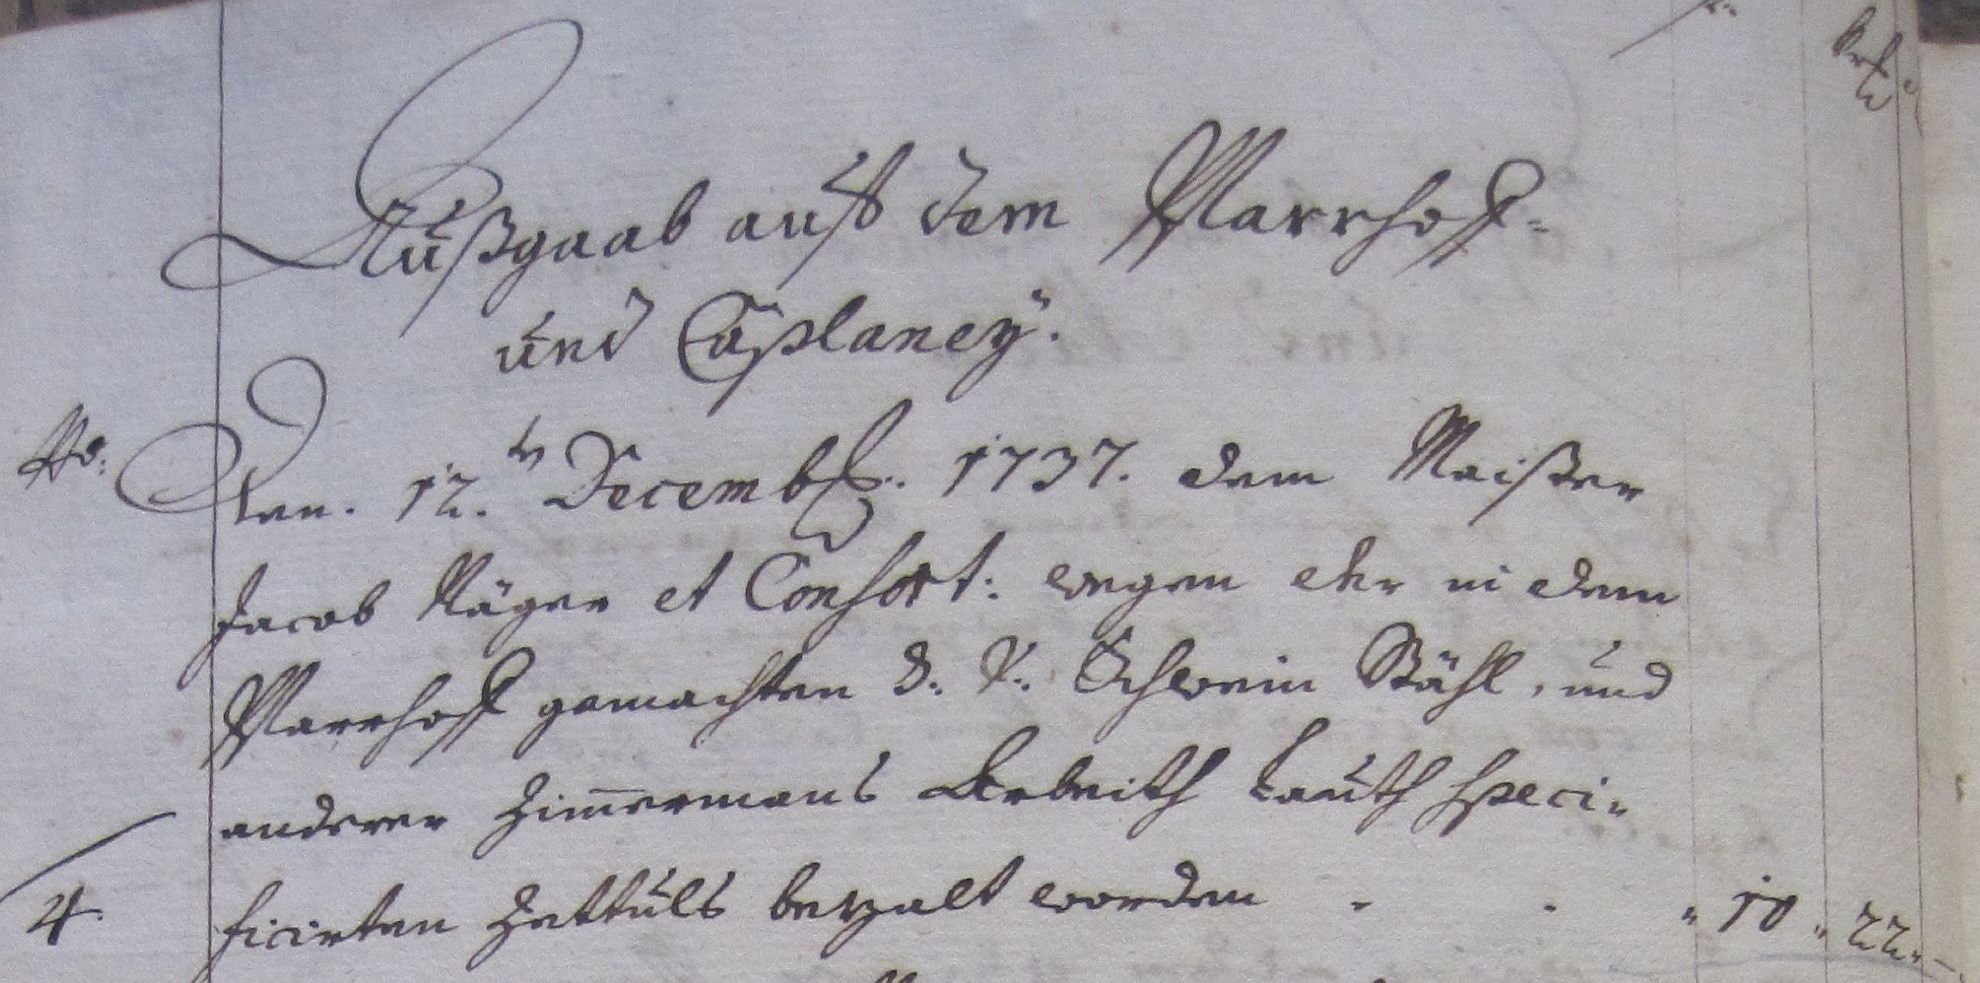 Außgaab auf dem Pfarrhoff-
und Caplaney.
No:
Den. 12.ten Decembr: 1737. dem Maister
Jacob Näger et Consort: wegen der in dem
Pfarrhoff gemachten S: V: Schwein Ställ, und
anderer Zimermans Arbeith Lauth speci-
4. ficirten Zettuls bezalt worden - - " 10 " 22 " -